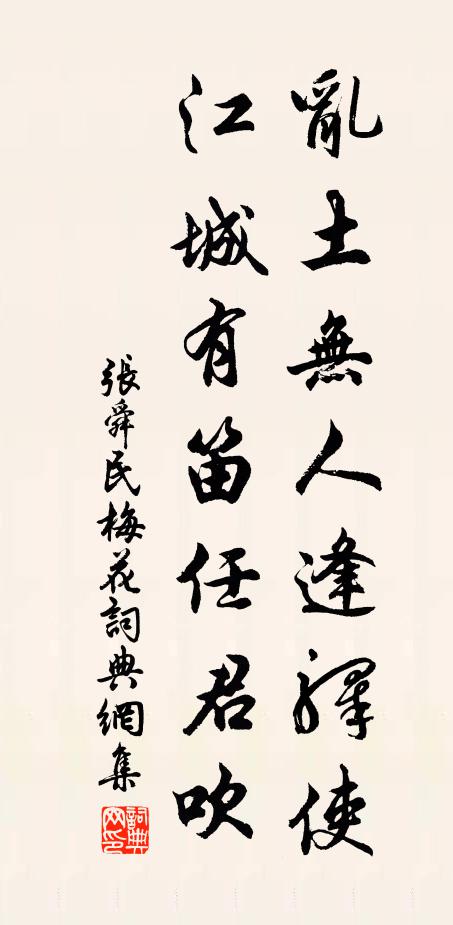 亂土無人逢驛使
江城有笛任君吹
張舜民梅花詞典網集
詞典網印